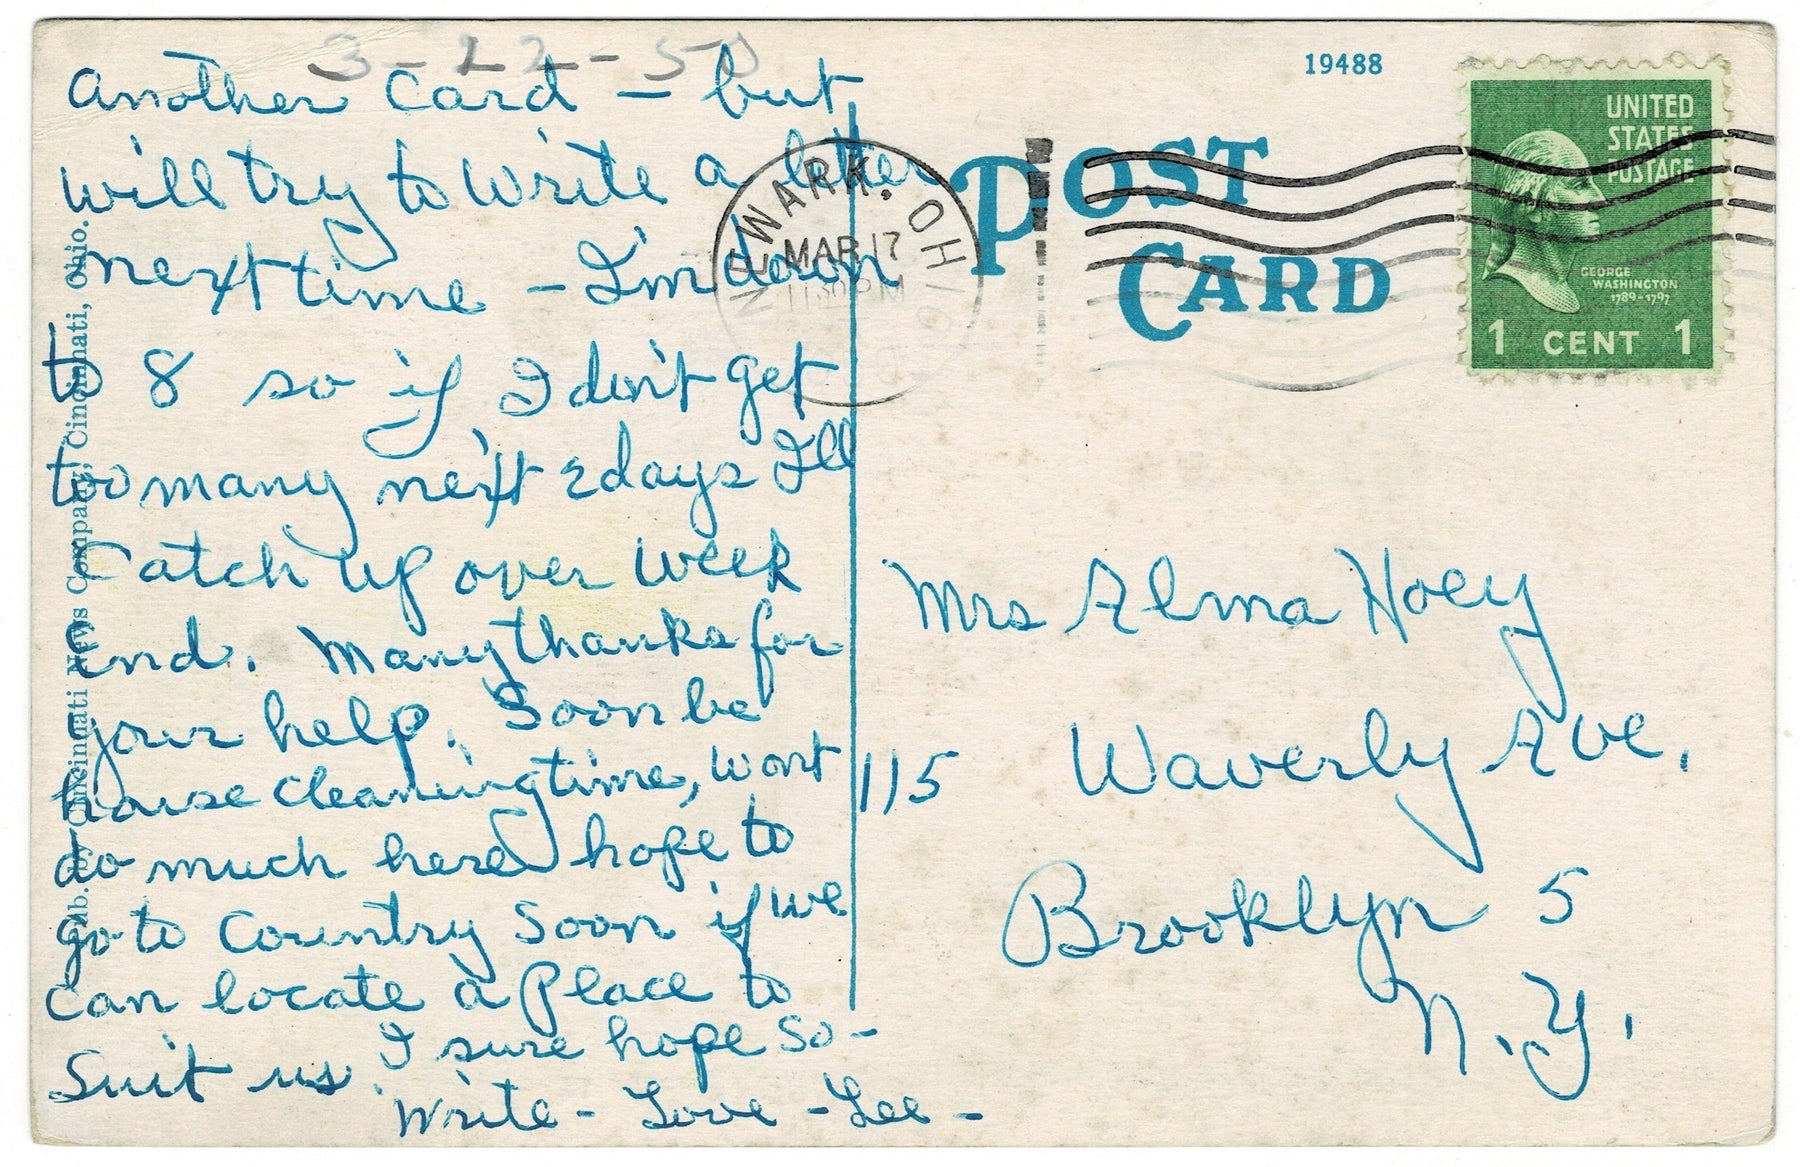 3-22-50
Another Card - but
will try to write a letter
next time - I'm down
to 8 so if I don't get
too many next 2 days I'll
Catch up over week
end. Many thanks for
your help. Soon be
house cleaning time, wont
do much here hope to
go to Country soon if we
can locate a place to
suit us. I sure hope so-
Write - Love - Lee -
Pub. by Cincinnati News Company, Cincinnati, Ohio.
NEWARK, OHIO
MAR 17
11 30 PM
POST
CARD
19488
UNITED
STATES
POSTAGE
GEORGE
WASHINGTON
1789-1797
1 CENT 1
Mrs Alma Hoey
115 Waverly Ave,
Brooklyn 5
N.Y.